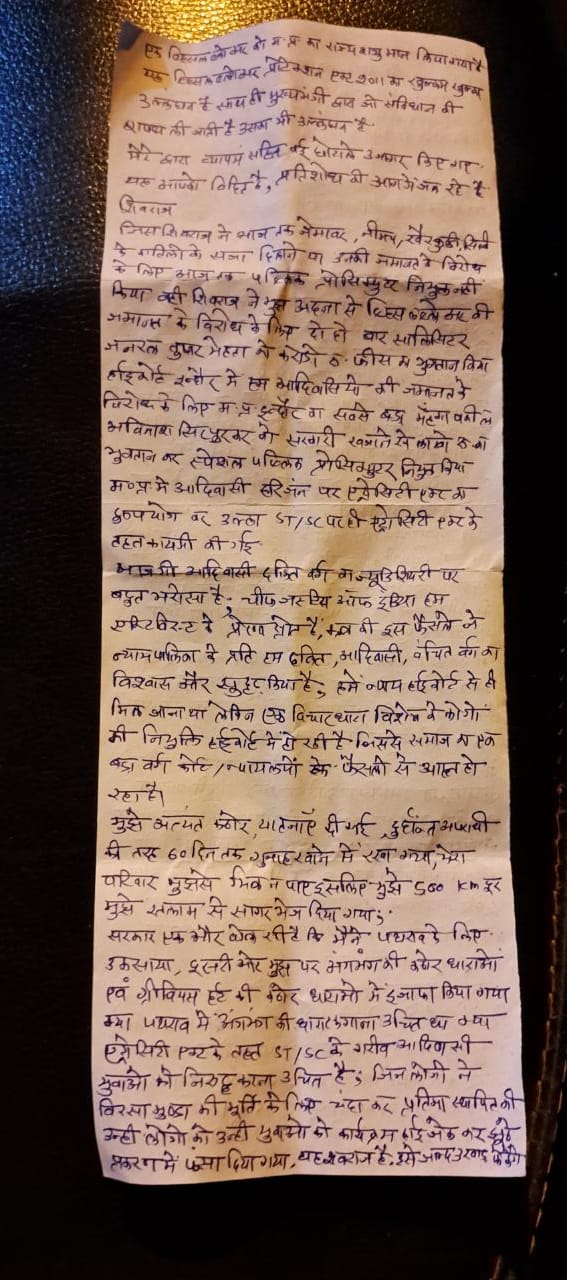 एक व्हिसल ब्लोअर को म.प्र. का राज्य शत्रु मान लिया गया है
यह व्हिसल ब्लोअर प्रोटेक्शन एक्ट 2011 का खुल्लम खुल्ला
उल्लंघन है साथ ही मुख्यमंत्री द्वारा जो संविधान की
शपथ ली जाती है उसका भी उल्लंघन है.
मेरे द्वारा व्यापमं सहित कई घोटाले उजागर किए गए.
यह आपको विदित है, प्रतिशोध की आग में जल रहे है
शिवराज
जिस शिवराज ने आज तक नेमावर, नीमच, खैरकुडी, सिलो
के कातिलो को सजा दिलाने या उनकी जमानत के विरोध
के लिए आज तक पब्लिक प्रोसिक्यूटर नियुक्त नही
किया वही शिवराज ने मुझ अदना से व्हिसल ब्लोअर की
जमानत के विरोध के लिए दो दो बार सालिसिटर
जनरल तुषार मेहता को करोडो रु. फीस का भुगतान किया
हाईकोर्ट इन्दौर मे हम आदिवासियो की जमानत के
विरोध के लिए म.प्र. का सबसे बडा मंहगा वकील
अविनाश सिरपुरकर को सरकारी खजाने से लाखो रु का
भुगतान कर स्पेशल पब्लिक प्रोसिक्यूटर नियुक्त किया
म०प्र० मे आदिवासी हरिजन पर एट्रोसिटी एक्ट का
दुरुपयोग कर उल्टा ST/SC पर ही एट्रोसिटी एक्ट के
तहत कायमी की गई.
आज भी आदिवासी दलित वर्ग का ज्यूडिशियरी पर
बहुत भरोसा है. चीफ जस्टिस ऑफ इंडिया हम
एक्टिविस्ट के प्रेरणा स्रोत है, कल की इस फैसले ने
न्यायपालिका के प्रति हम दलित, आदिवासी, वंचित वर्ग का
विश्वास और सुदृढ किया है, हमे न्याय हाईकोर्ट से ही
मिल जाना था लेकिन एक विचारधारा विशेष के लोगो
की नियुक्ति हाईकोर्ट मे हो रही है जिससे समाज का एक
बडा वर्ग कोर्ट/न्यायलयों के फैसलो से आहत हो
रहा है।
मुझे अत्यंत कठोर, यातनाएँ दी गई, दुर्दान्त अपराधी
की तरह 60 दिन तक गुनाहखाने में रखा गया, मेरा
परिवार मुझसे मिल न पाए इसलिए मुझे 500 KM दूर
मुझे रतलाम से सागर भेज दिया गया;
सरकार एक और कह रही है कि मैने पथराव के लिए
उकसाया, दूसरी ओर मुझ पर अंगभंग की कठोर धाराओ
एवं ग्रीवियस हर्ट की कठोर धाराओ मे इजाफा किया गया
क्या पथराव मे अंगभंग की धारा लगाना उचित था क्या
एट्रोसिटी एक्ट के तहत ST/SC के गरीब आदिवासी
युवाओ को निरुद्ध करना उचित है; जिन लोगो ने
बिरसा मुण्डा की मूर्ति के लिए चंदा कर प्रतिमा स्थापित की
उन्ही लोगो को उन्ही युवाओ को कार्यक्रम हाईजेक कर झूठे
प्रकरण में फंसा दिया गया, यह शवराज है, इसे जल्द उखाड फेंकेंगे